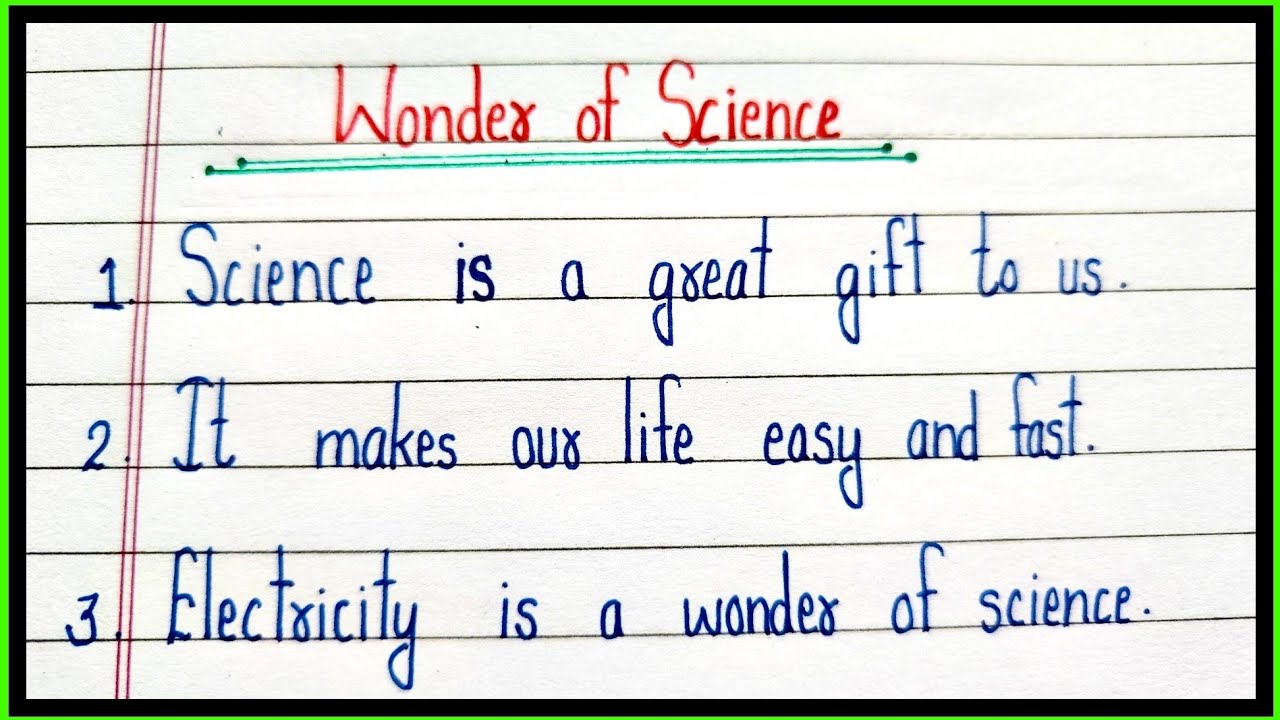 Wonder of Science
1. Science is a great gift to us.
2. It makes our life easy and fast.
3. Electricity is a wonder of science.